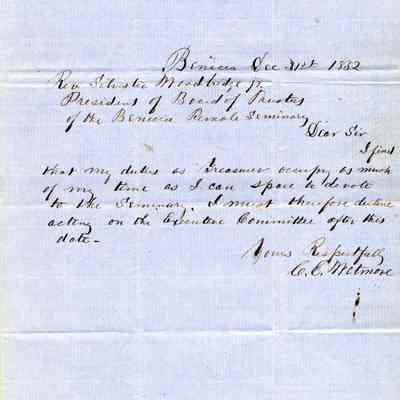 Benicia Dec 31st 1852
Rev. Silvester Woodbridge Jr.
President of Board of Trustees
of the Benicia Female Seminary
Dear Sir
I find
that my duties as Treasurer occupy as much
of my time as I can spare to devote
to the Seminary. I must therefore decline
acting on the Executive Committee after this
date –
Yours Respectfully
C. E. Wetmore